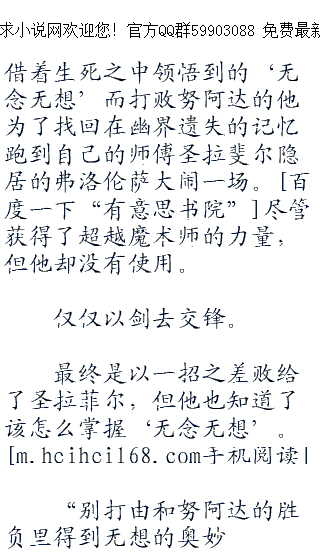 求小说网欢迎您！官方QQ群59903088 免费最新
借着生死之中领悟到的‘无
念无想’而打败努阿达的他
为了找回在幽界遗失的记忆
跑到自己的师傅圣拉斐尔隐
居的弗洛伦萨大闹一场。[百
度一下“有意思书院”]尽管
获得了超越魔术师的力量，
但他却没有使用。
仅仅以剑去交锋。
最终是以一招之差败给
了圣拉菲尔，但他也知道了
该怎么掌握‘无念无想’。
[m.hcihcil68.com手机阅读|
“别打由和努阿达的胜
负里得到无想的奥妙